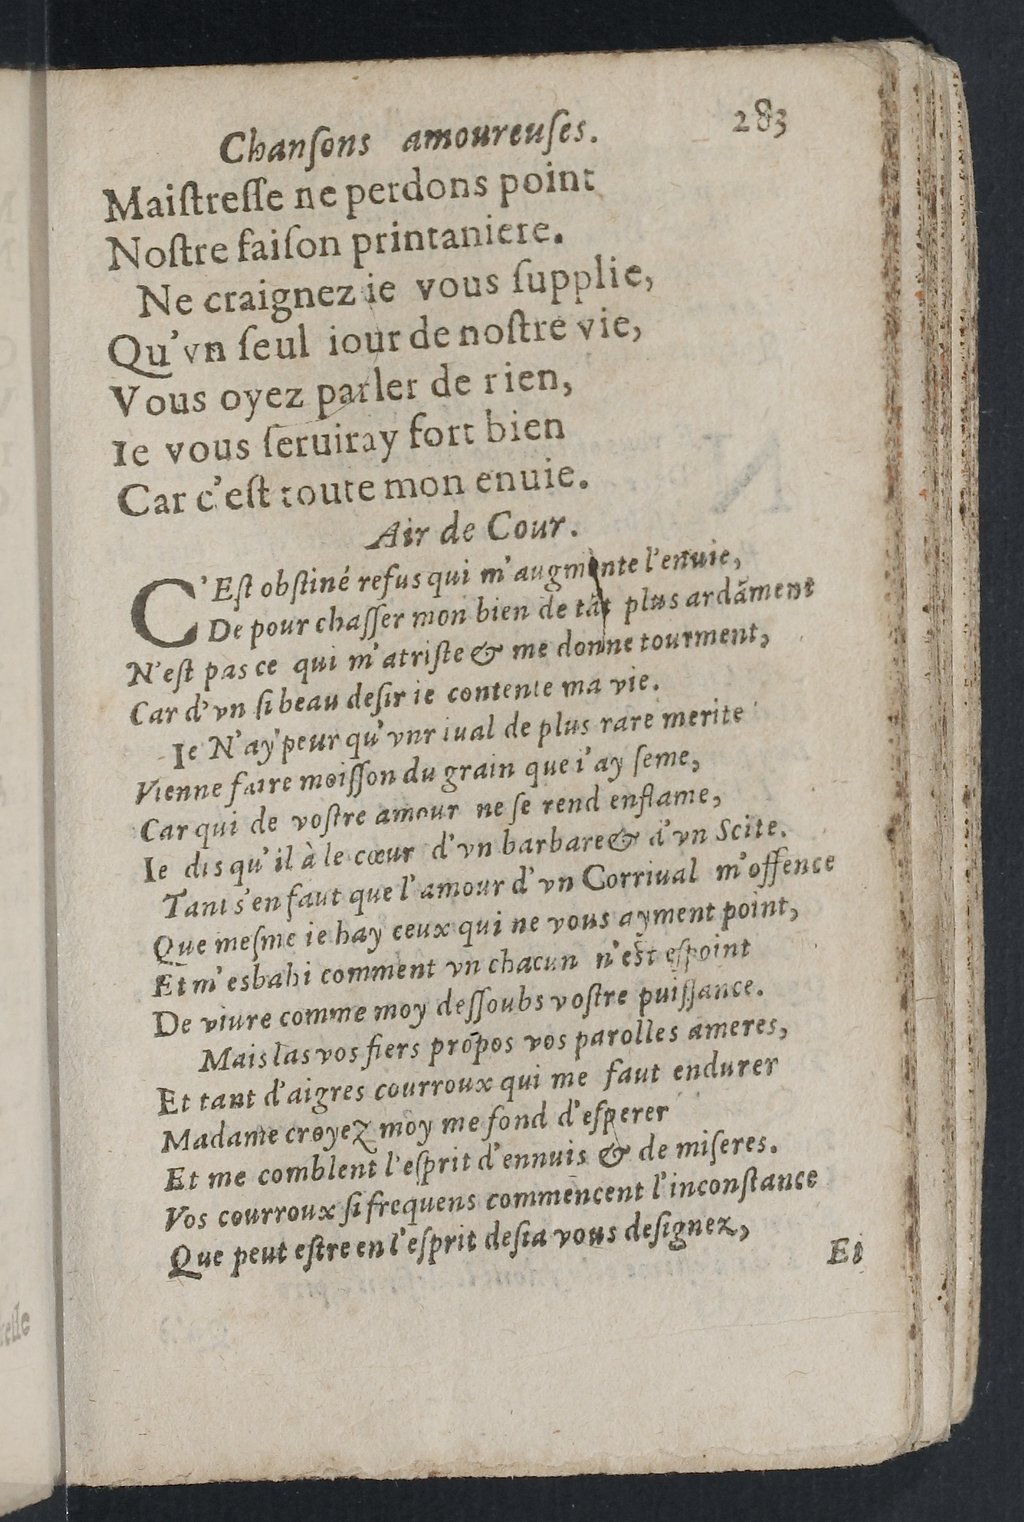 Chanſons amoureuſes. 283
Maiſtreſſe ne perdons point
Noſtre faiſon printaniere.
Ne craignez ie vous ſupplie,
Qu'vn ſeul iour de noſtre vie,
Vous oyez parler de rien,
Ie vous ſeruiray fort bien
Car c'eſt toute mon enuie.
Air de Cour.
C'Eſt obſtiné refus qui m'augmente l'enuie,
De pour chaſſer mon bien de tãt plus ardãment
N'eſt pas ce qui m'atriſte & me donne tourment,
Car d'vn ſi beau deſir ie contente ma vie.
Ie N'ay peur qu'vnr iual de plus rare merite
Vienne faire moiſſon du grain que i'ay ſeme,
Car qui de voſtre amour ne ſe rend enflame,
Ie dis qu'il à le cœur d'vn barbare & d'vn Scite.
Tant s'en faut que l'amour d'vn Corriual m'offence
Que meſme ie hay ceux qui ne vous ayment point,
Et m'esbahi comment vn chacun n'est eſpoint
De viure comme moy deſſoubs voſtre puiſſance.
Mais las vos fiers propos vos parolles ameres,
Et tant d'aigres courroux qui me faut endurer
Madame croyez moy me fond d'eſperer
Et me comblent l'eſprit d'ennuis & de miſeres.
Vos courroux ſi frequens commencent l'inconſtance
Que peut eſtre en l'eſprit deſia vous deſignez,
Et